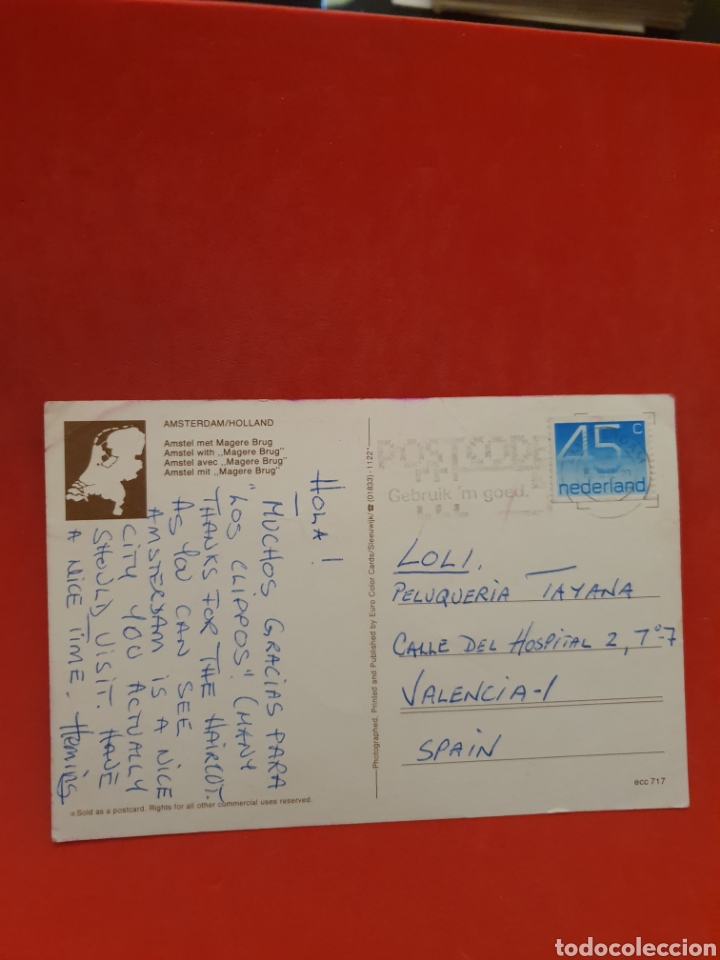 AMSTERDAM/HOLLAND
Amstel met Magere Brug
Amstel with „Magere Brug"
Amstel avec „Magere Brug"
Amstel mit „Magere Brug"
HOLA!
MUCHOS GRACIAS PARA
"LOS CLIPPOS". (MANY
THANKS FOR THE HAIRCUT.
AS YOU CAN SEE
AMSTERDAM IS A NICE
CITY YOU ACTUALLY
SHOULD VISIT. HAVE
A NICE TIME.
Sold as a postcard. Rights for all other commercial uses reserved.
Photographed, Printed and Published by Euro Color Cards/Sleeuwijk/☎ (01833)-1122
POSTCODE
Gebruik 'm goed.
45 c
nederland
LOLI.
PELUQUERIA TAYANA
CALLE DEL HOSPITAL 2, 7º-7
VALENCIA-1
SPAIN
ecc 717
todocoleccion